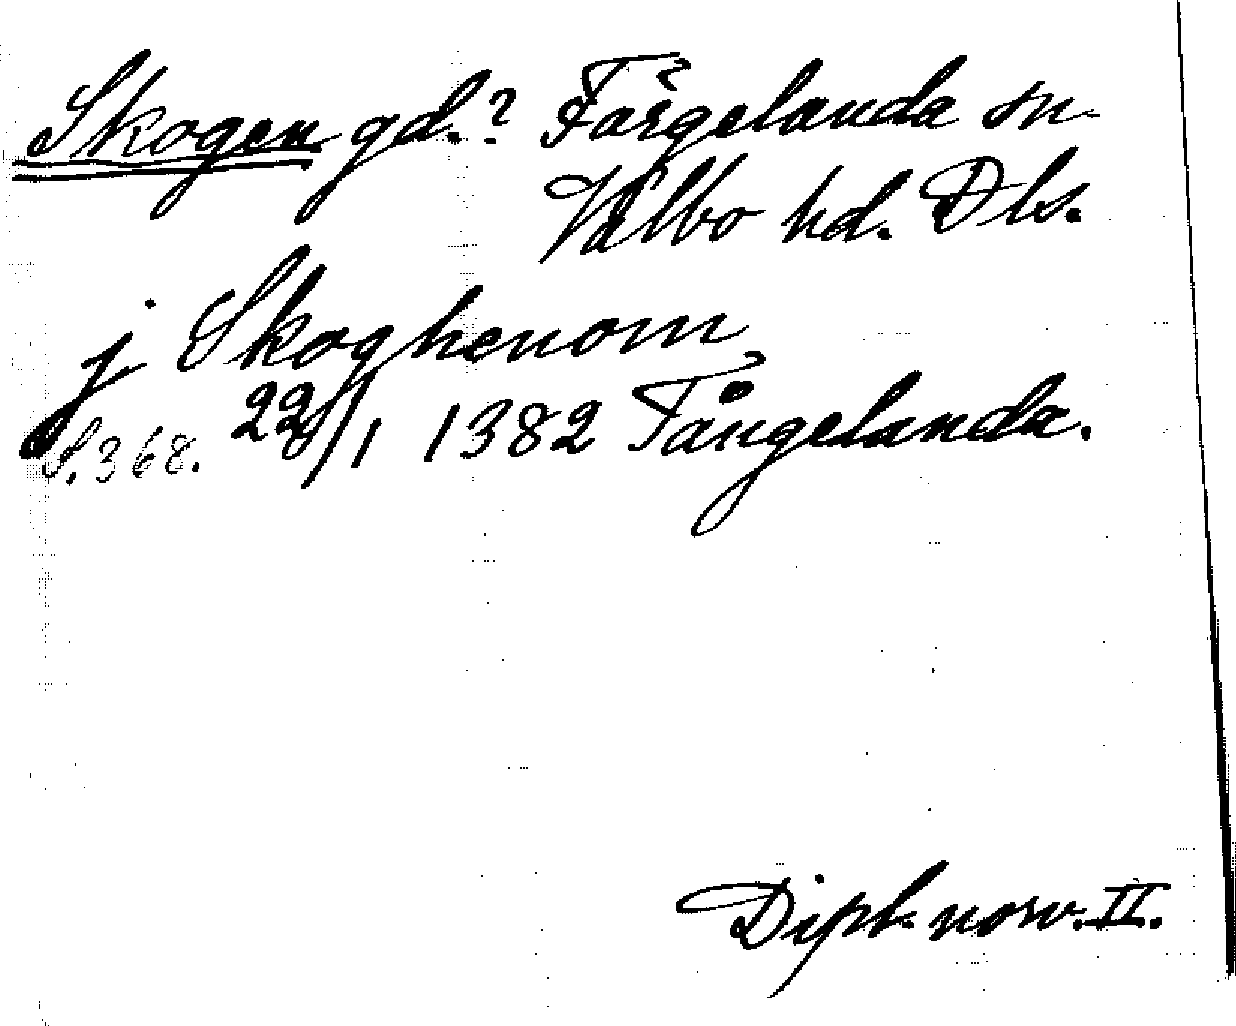 Skogen gd.? Färgelanda sn
Valbo hd. Dls.
j Skoghenom
S. 368. 22/1 1382 Fångelanda.
Dipl. norv. II.